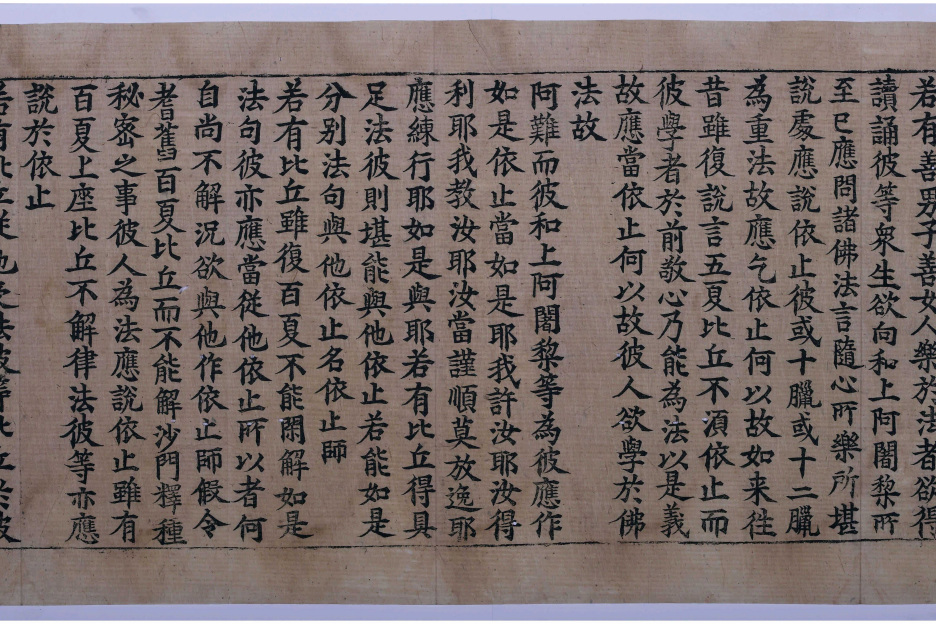 若有善男子善女人樂於法者欲得
讀誦彼等衆生欲向和上阿闍黎所
至已應問諸佛法言隨心所樂所堪
說處應說依止彼或十臘或十二臘
為重法故應乞依止何以故如来往
昔雖復說言五夏比丘不須依止而
彼學者於前敬心乃能為法以是義
故應當依止何以故彼人欲學於佛
法故
阿難而彼和上阿闍黎等為彼應作
如是依止當如是耶我許汝耶汝得
利耶我教汝耶汝當謹順莫放逸耶
應練行耶如是與耶若有比丘得具
足法彼則堪能與他依止若能如是
分別法句與他依止名依止師
若有比丘雖復百夏不能閑解如是
法句彼亦應當從他依止所以者何
自尚不解況欲與他作依止師假令
耆舊百夏比丘而不能解沙門釋種
秘密之事彼人為法應說依止雖有
百夏上座比丘不解律法彼等亦應
說於依止
若有比丘從他受法彼等比丘於彼